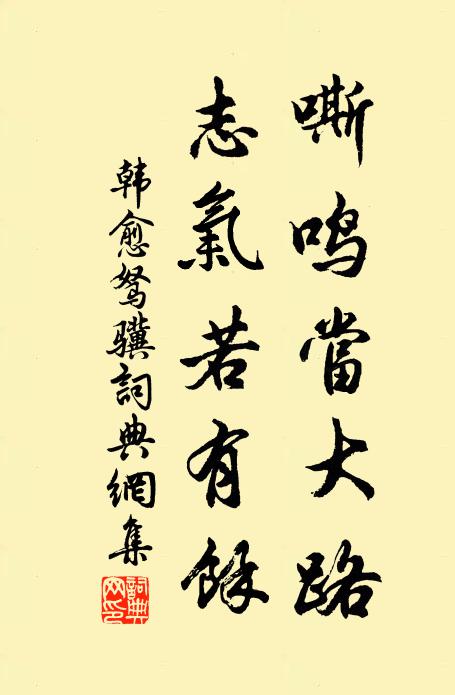 嘶鸣當大路
志氣若有餘
韩愈驽骥詞典網集
詞典
网印